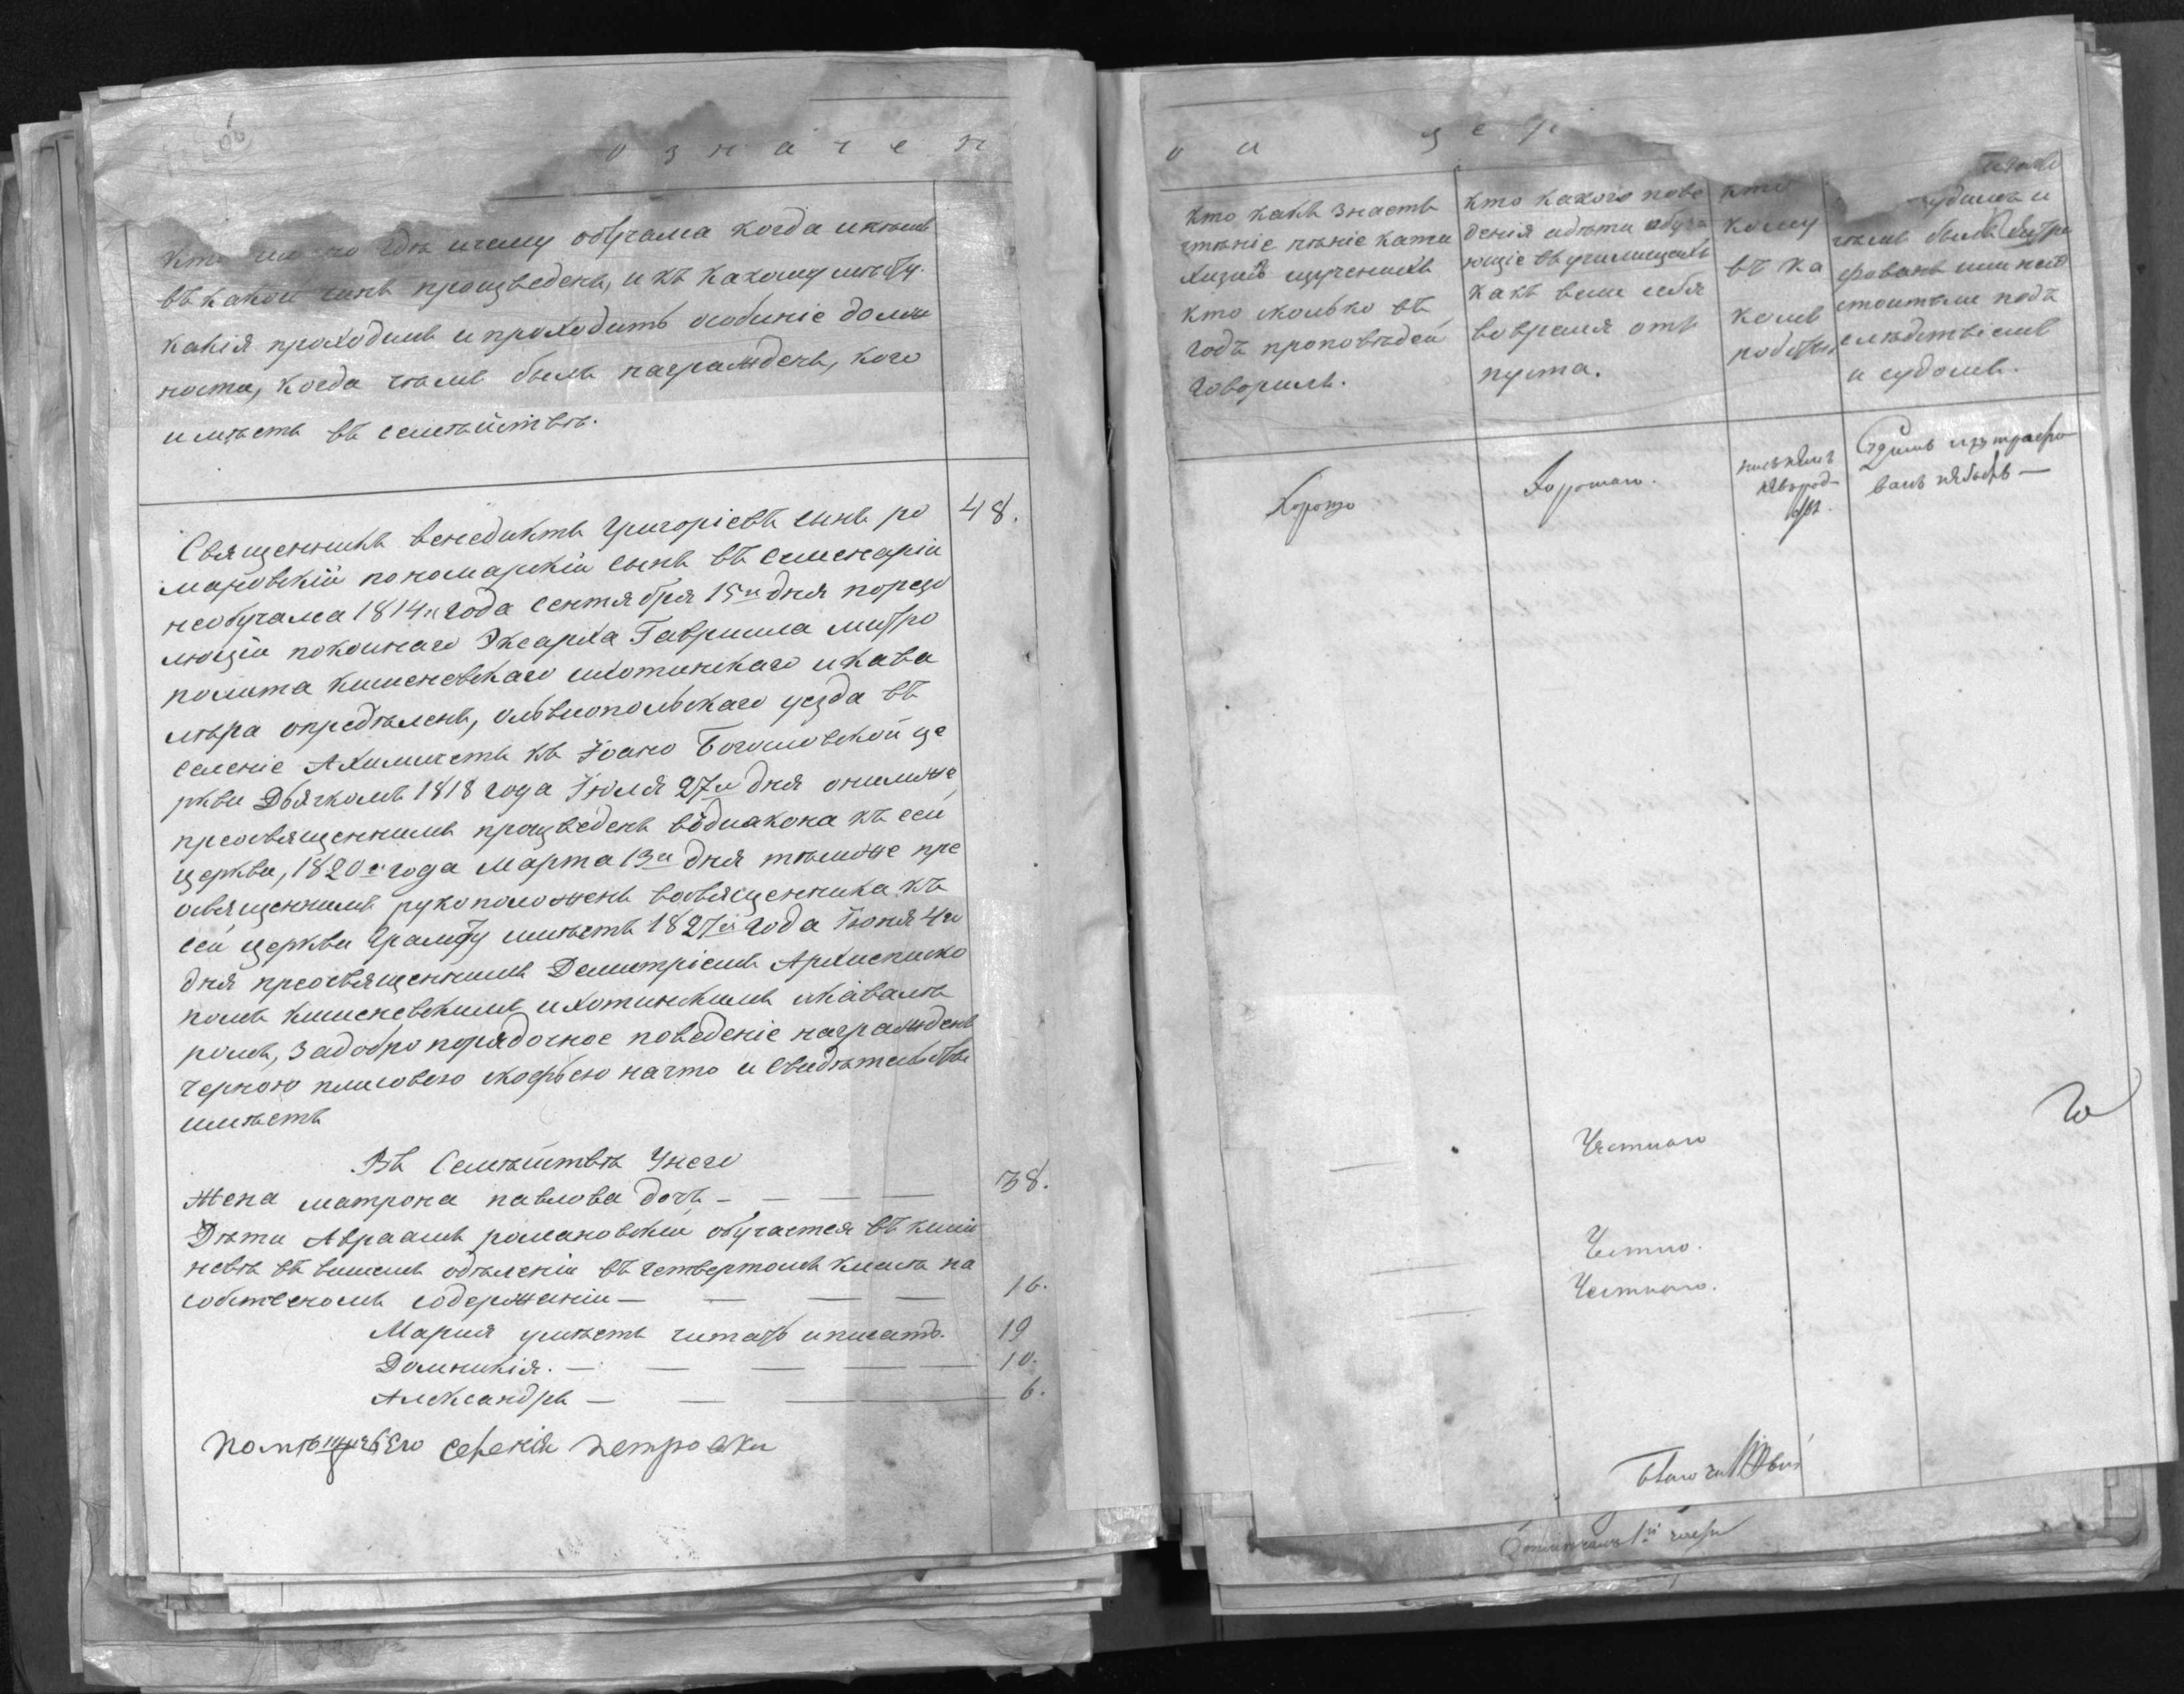 о з н а ч е н
гдѣ и чему обучался когда и какимъ
въ какой чинъ произведенъ, и къ какому мѣсту.
какія проходилъ и проходитъ особиніе долж
ности, когда чѣмъ былъ награжденъ, кого
имѣетъ въ семѣйствѣ.
Священникъ венедиктъ Григоріевъ сынъ ро
мановскій пономарскій сынъ въ семенаріи
необучался 1814го года Сентября 15го дня порезо
люціи покойнаго Эксарха Гавріила митро
полита кишеневскаго ихотинскаго икава
лѣра опредѣленъ, ольвиопольскаго уезда въ
селеніе Ахмичетъ къ Іоано Богословской це
ркви Дьячкомъ 1818 года Іюля 27го дня онимже
преосвященнимъ произведенъ водиакона къ сей
церкви, 1820го года марта 13го дня тѣмже пре
освященнимъ рукоположенъ восвященника къ
сей церкви Грамоту имѣетъ 1827го года Іюня 4го
дня преосвященнимъ Демитріемъ Архиеписко
помъ кишеневскимъ ихотинскимъ икавалѣ
ромъ, задобропорядочное поведеніе награжденъ
черною плисовою скофьею начто и свидѣтельство
имѣетъ
48.
Въ Семѣйствѣ Унего
Жена матрона павлова дочь — — — — 38.
Дѣти Авраамъ романовскій обучается въ киши
невѣ въ вишемъ одѣленіи въ четвертомъ класѣ на
собственомъ содержаніи — — — — 16.
Мария умѣетъ читать иписать. 19
Домникія. — — — — 10.
Александръ — — — 6.
помѣщичьяго селенія петровки
о а з е р
кто какъ знаетъ
чтѣніе пѣніе кати
хизисъ иученихъ
кто сколько въ
годъ проповѣдей
говорилъ.
кто какого пове
денія адѣти обуча
ющіе въучилищахъ
какъ вели себя
вовремя отп
пуста.
кто
кому
въ ка
комъ
родствѣ
судимъ и
чѣмъ былъ штра
фованъ или нест
стоитъли подъ
слѣдствіемъ
и судомъ.
Хорошо
Хорошаго.
ни съ кѣмъ
не въ род
ствѣ.
Судимъ и штрафо
ванъ не былъ —
Честнаго
Честно.
Честнаго.